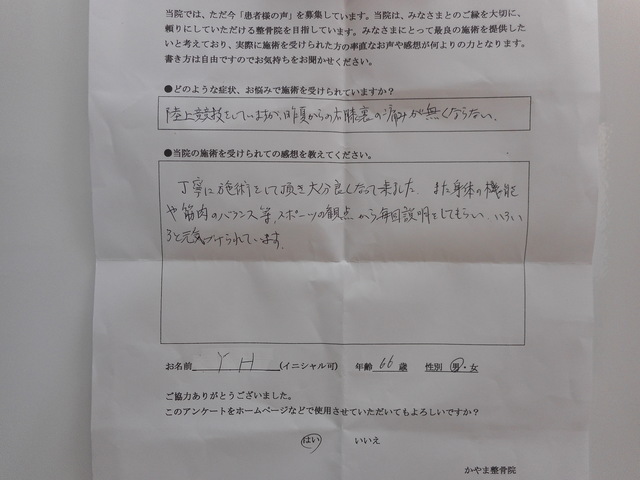 当院では、ただ今「患者様の声」を募集しています。当院は、みなさまとのご縁を大切に、
頼りにしていただける整骨院を目指しています。みなさまにとって最良の施術を提供した
いと考えており、実際に施術を受けられた方の率直なお声や感想が何よりの力となります。
書き方は自由ですのでお気持ちをお聞かせください。
●どのような症状、お悩みで施術を受けられていますか?
陸上競技をしていますが、昨夏からの右膝裏の痛みが無くならない。
●当院の施術を受けられての感想を教えてください。
丁寧に施術をして頂き大分良くなって来ました。また身体の機能
や筋肉のバランス等、スポーツの観点から毎回説明をしてもらい、いろい
ろと元気づけられています。
お名前 Y H (イニシャル可) 年齢 66 歳 性別 男・女
ご協力ありがとうございました。
このアンケートをホームページなどで使用させていただいてもよろしいですか?
はい いいえ
かやま整骨院